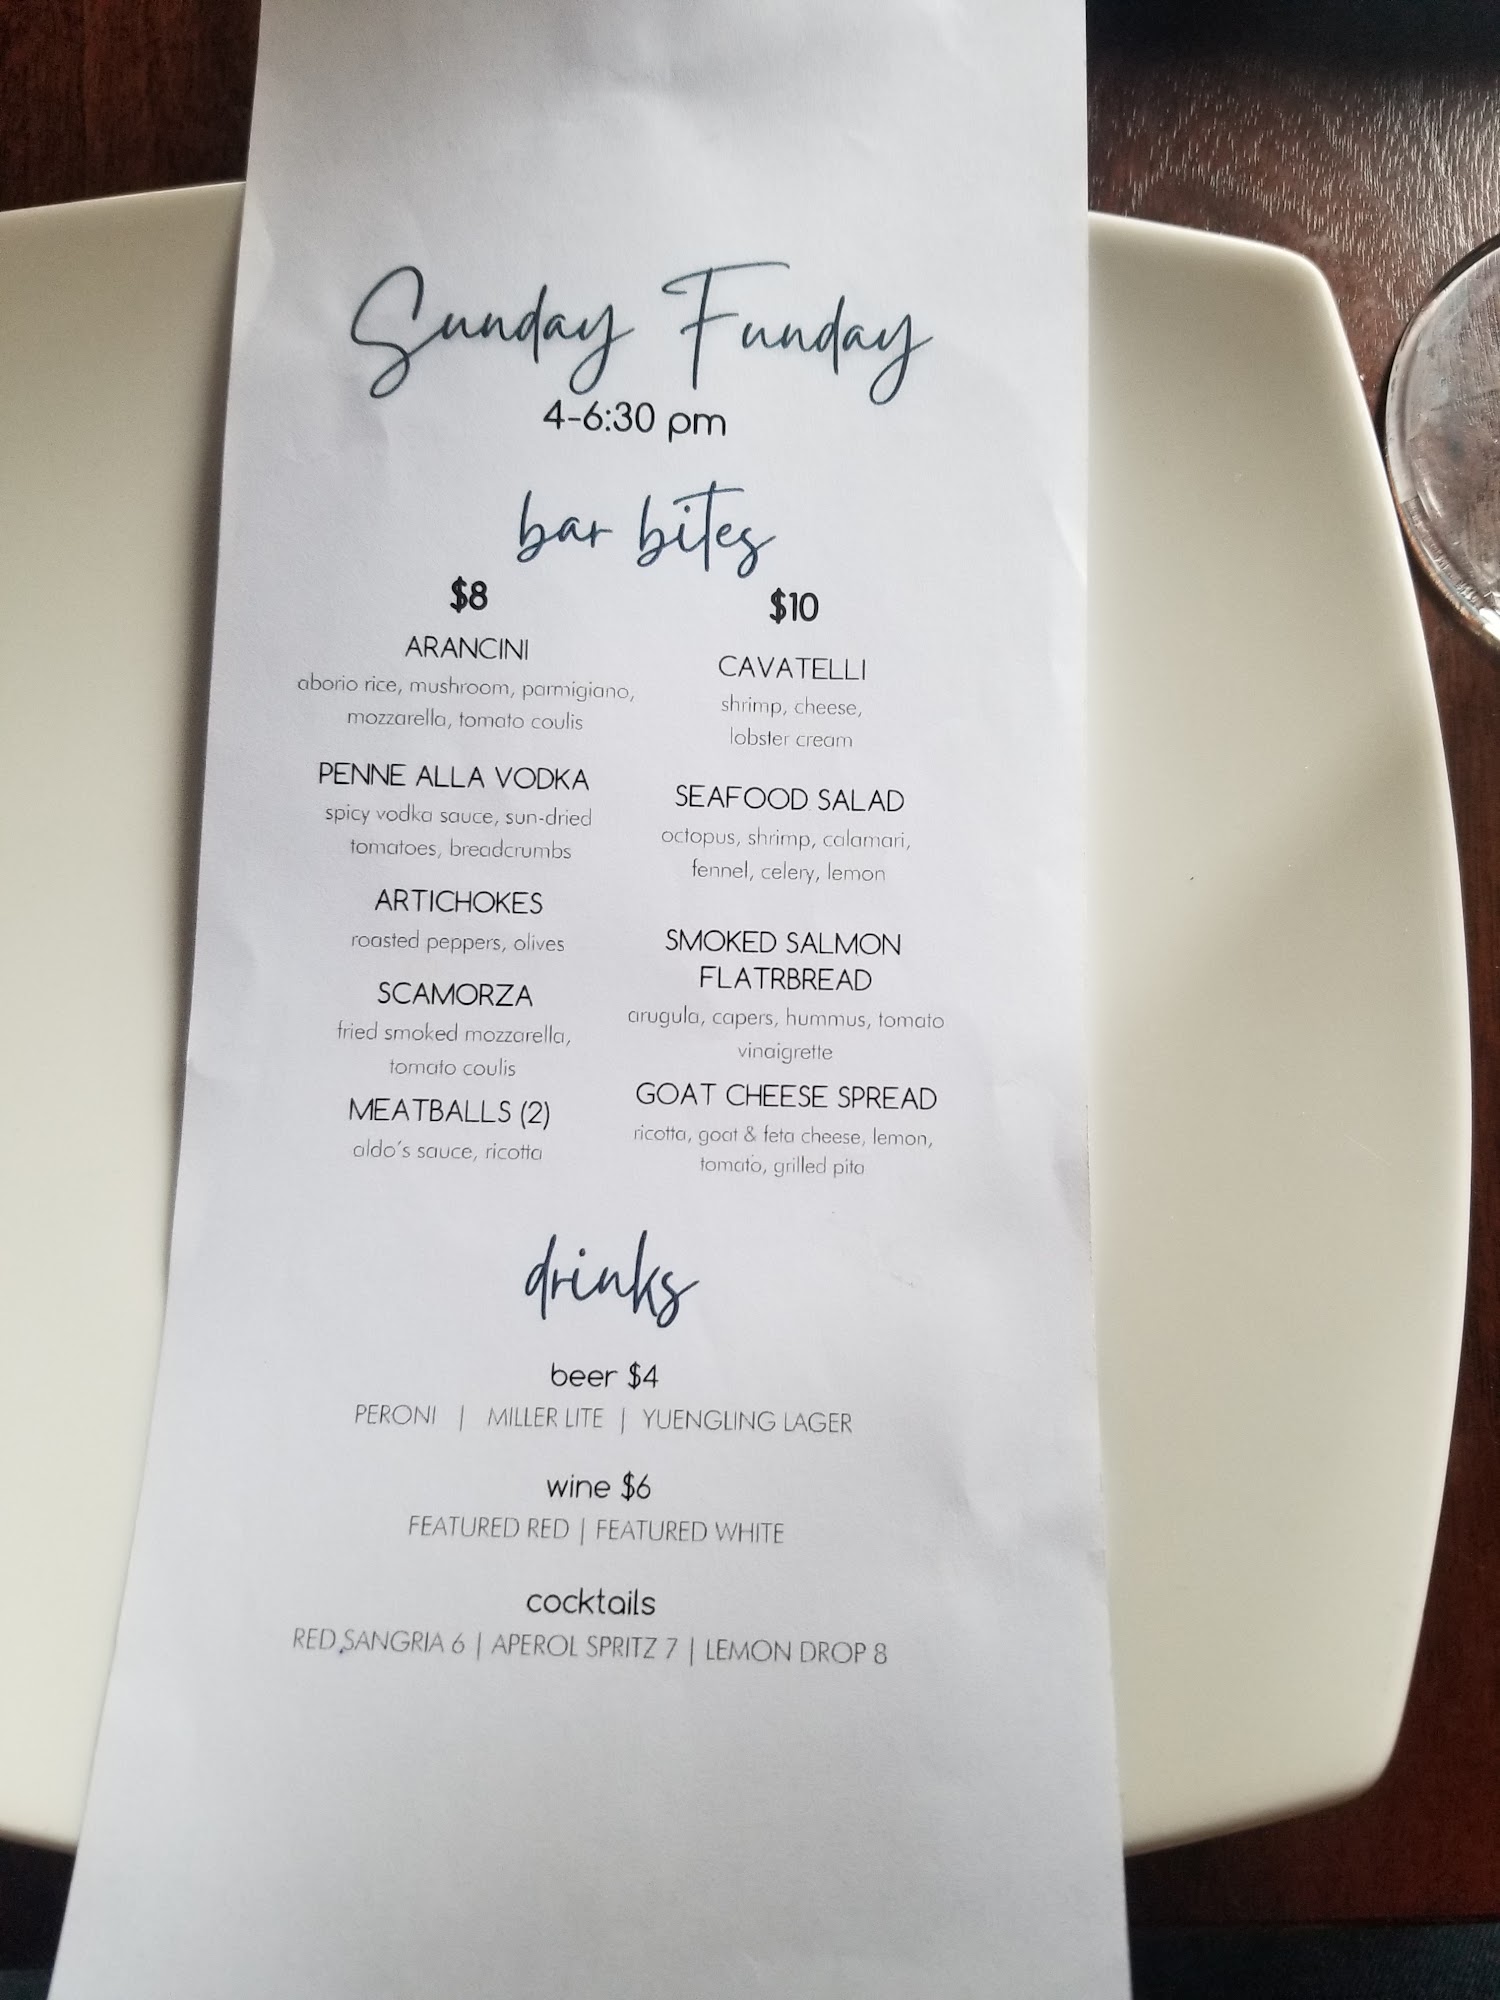 Sunday Funday
4-6:30 pm
bar bites
$8
ARANCINI
aborio rice, mushroom, parmigiano,
mozzarella, tomato coulis
PENNE ALLA VODKA
spicy vodka sauce, sun-dried
tomatoes, breadcrumbs
ARTICHOKES
roasted peppers, olives
SCAMORZA
fried smoked mozzarella,
tomato coulis
MEATBALLS (2)
aldo's sauce, ricotta
$10
CAVATELLI
shrimp, cheese,
lobster cream
SEAFOOD SALAD
octopus, shrimp, calamari,
fennel, celery, lemon
SMOKED SALMON
FLATRBREAD
arugula, capers, hummus, tomato
vinaigrette
GOAT CHEESE SPREAD
ricotta, goat & feta cheese, lemon,
tomato, grilled pita
drinks
beer $4
PERONI | MILLER LITE | YUENGLING LAGER
wine $6
FEATURED RED | FEATURED WHITE
cocktails
RED SANGRIA 6 | APEROL SPRITZ 7 | LEMON DROP 8